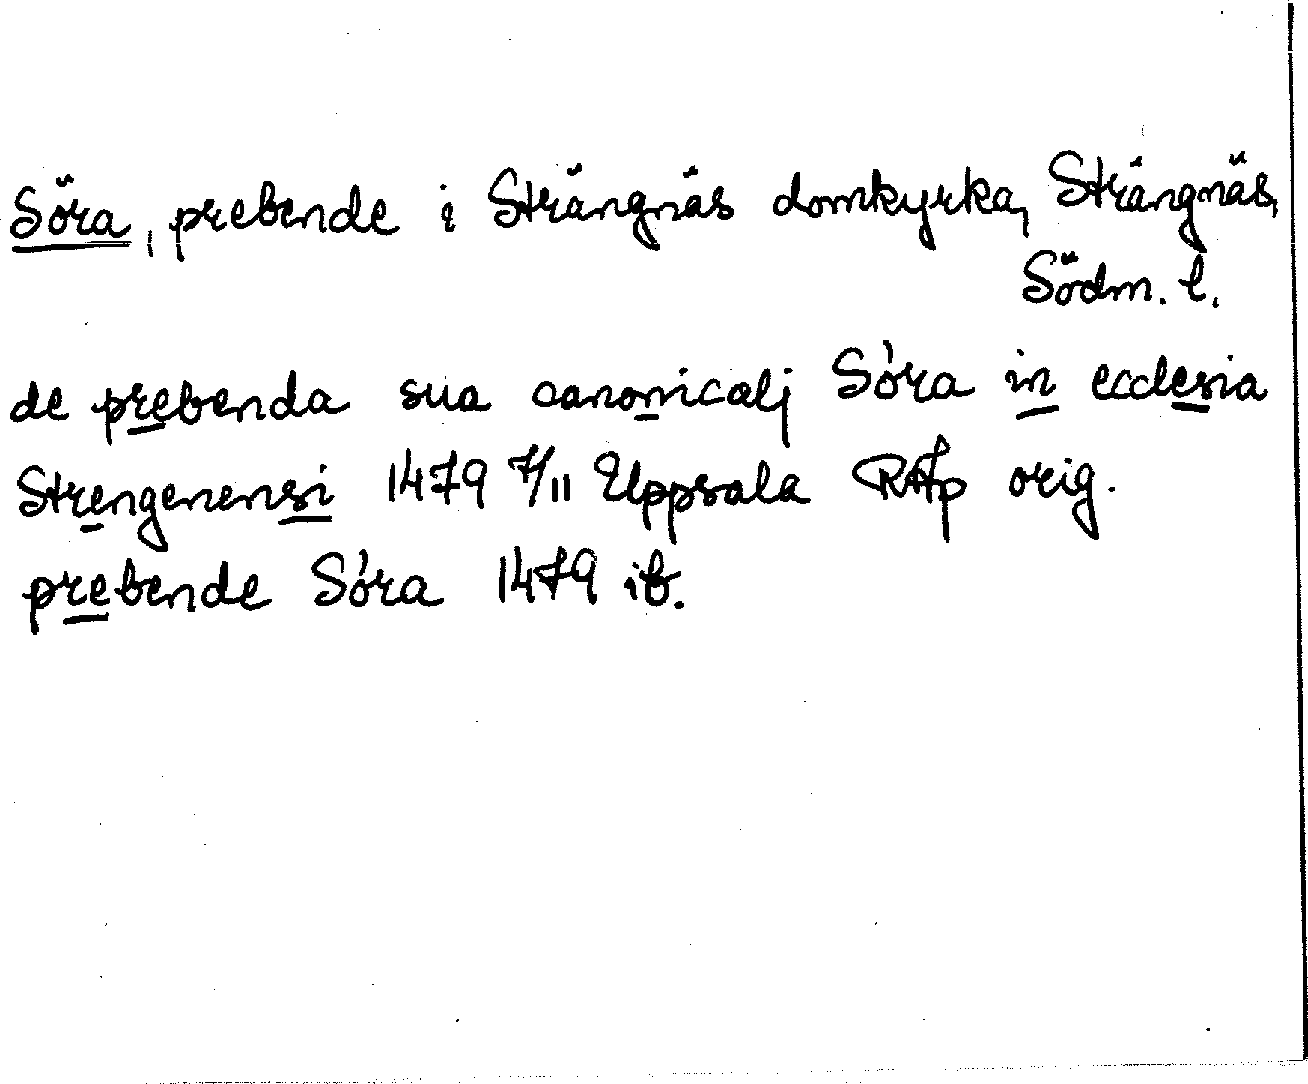 Söra, prebende i Strängnäs domkyrka, Strängnäs,
Södm. l.
de prebenda sua canonicalj Sóra in ecclesia
Strengenensi 1479 7/11 Uppsala RAp orig.
prebende Sóra 1479 ib.